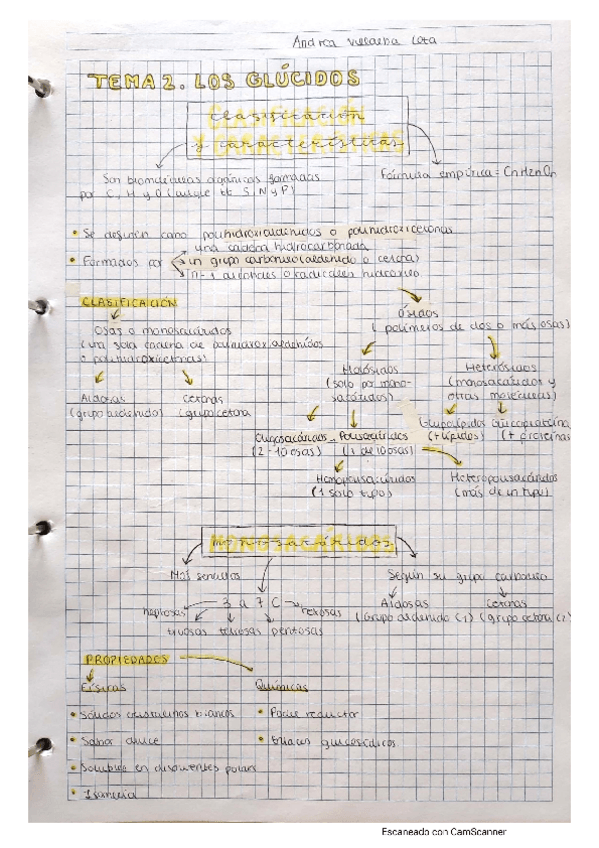 Andrea Villalba Lota
TEMA 2. LOS GLÚCIDOS
Clasificación
y características
Son biomoléculas orgánicas formadas
por C, H y O (aunque tb S, N y P)
Fórmula empírica = CnH2nOn
• Se definen como polihidroxialdehídos o polihidroxicetonas
una cadena hidrocarbonada
• Formados por un grupo carbonilo (aldehído o cetona)
n-1 alcoholes o radicales hidroxilo
CLASIFICACIÓN
Osas o monosacáridos
(una sola cadena de polihidroxialdehídos
o polihidroxicetonas)
Aldosas Cetonas
(grupo aldehído) (grupo cetona
Ósidos
(polímeros de dos o más osas)
Holósidos
(solo por mono-
sacáridos)
Heterósidos
(monosacáridos y
otras moléculas)
Oligosacáridos Polisacáridos
(2-10 osas) (+ de 10 osas)
Glucolípidos Glucoproteína
(+ lípidos) (+ proteínas
Homopolisacáridos
(1 solo tipo)
Heteropolisacáridos
(más de un tipo)
MONOSACÁRIDOS
Más sencillos
Según su grupo carbonilo
heptosas 3 a 7 C hexosas
triosas tetrosas pentosas
Aldosas Cetonas
(Grupo aldehído C1) (grupo cetona C2
PROPIEDADES
Físicas Químicas
• Sólidos cristalinos blancos • Poder reductor
• Sabor dulce • Enlaces glucosídicos
• Solubles en disolventes polar
• Isomería
Escaneado con CamScanner